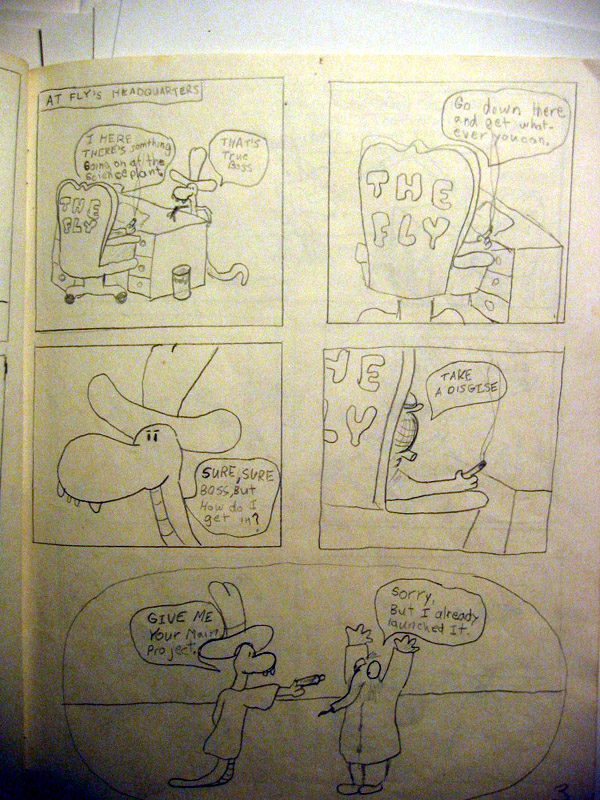 AT FLY'S HEADQUARTERS
I HERE
THERE'S Somthing
Going on at the
Science plant.
THAT'S
True
BOSS
THE
FLY
Go down there
and get what-
ever you can.
THE
FLY
SURE, SURE
BOSS, But
How do I
get in?
HE
LY
TAKE
A DISGISE
GIVE ME
Your Main
Project.
Sorry,
But I already
launched It.
3